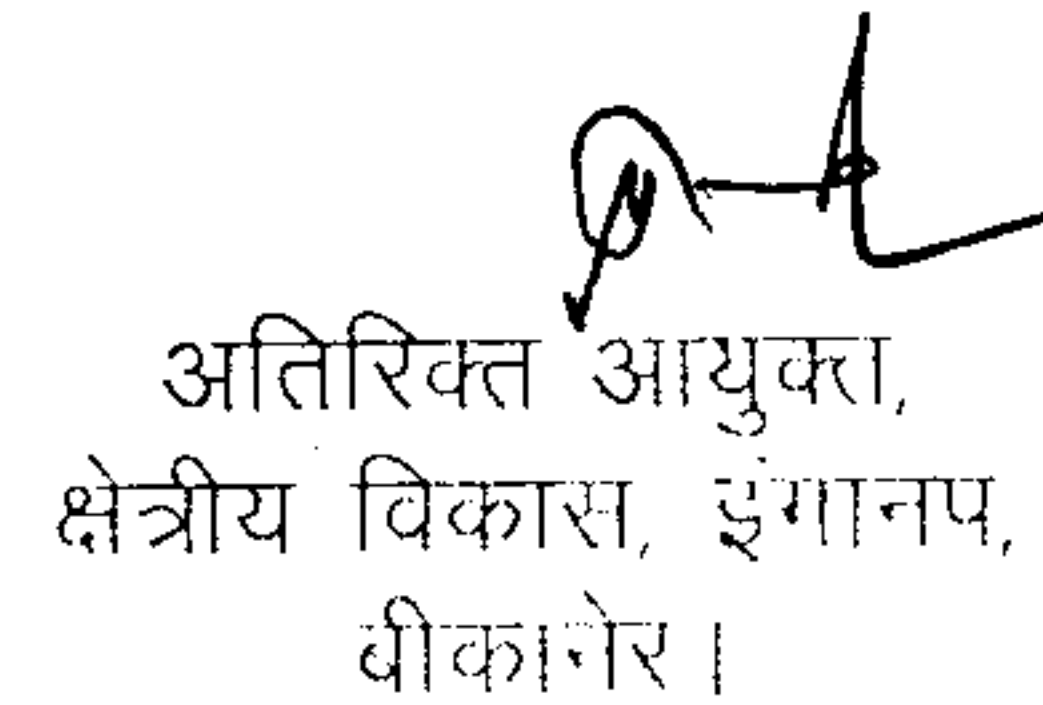 अतिरिक्त आयुक्त,
क्षेत्रीय विकास, इंगानप,
बीकानेर।